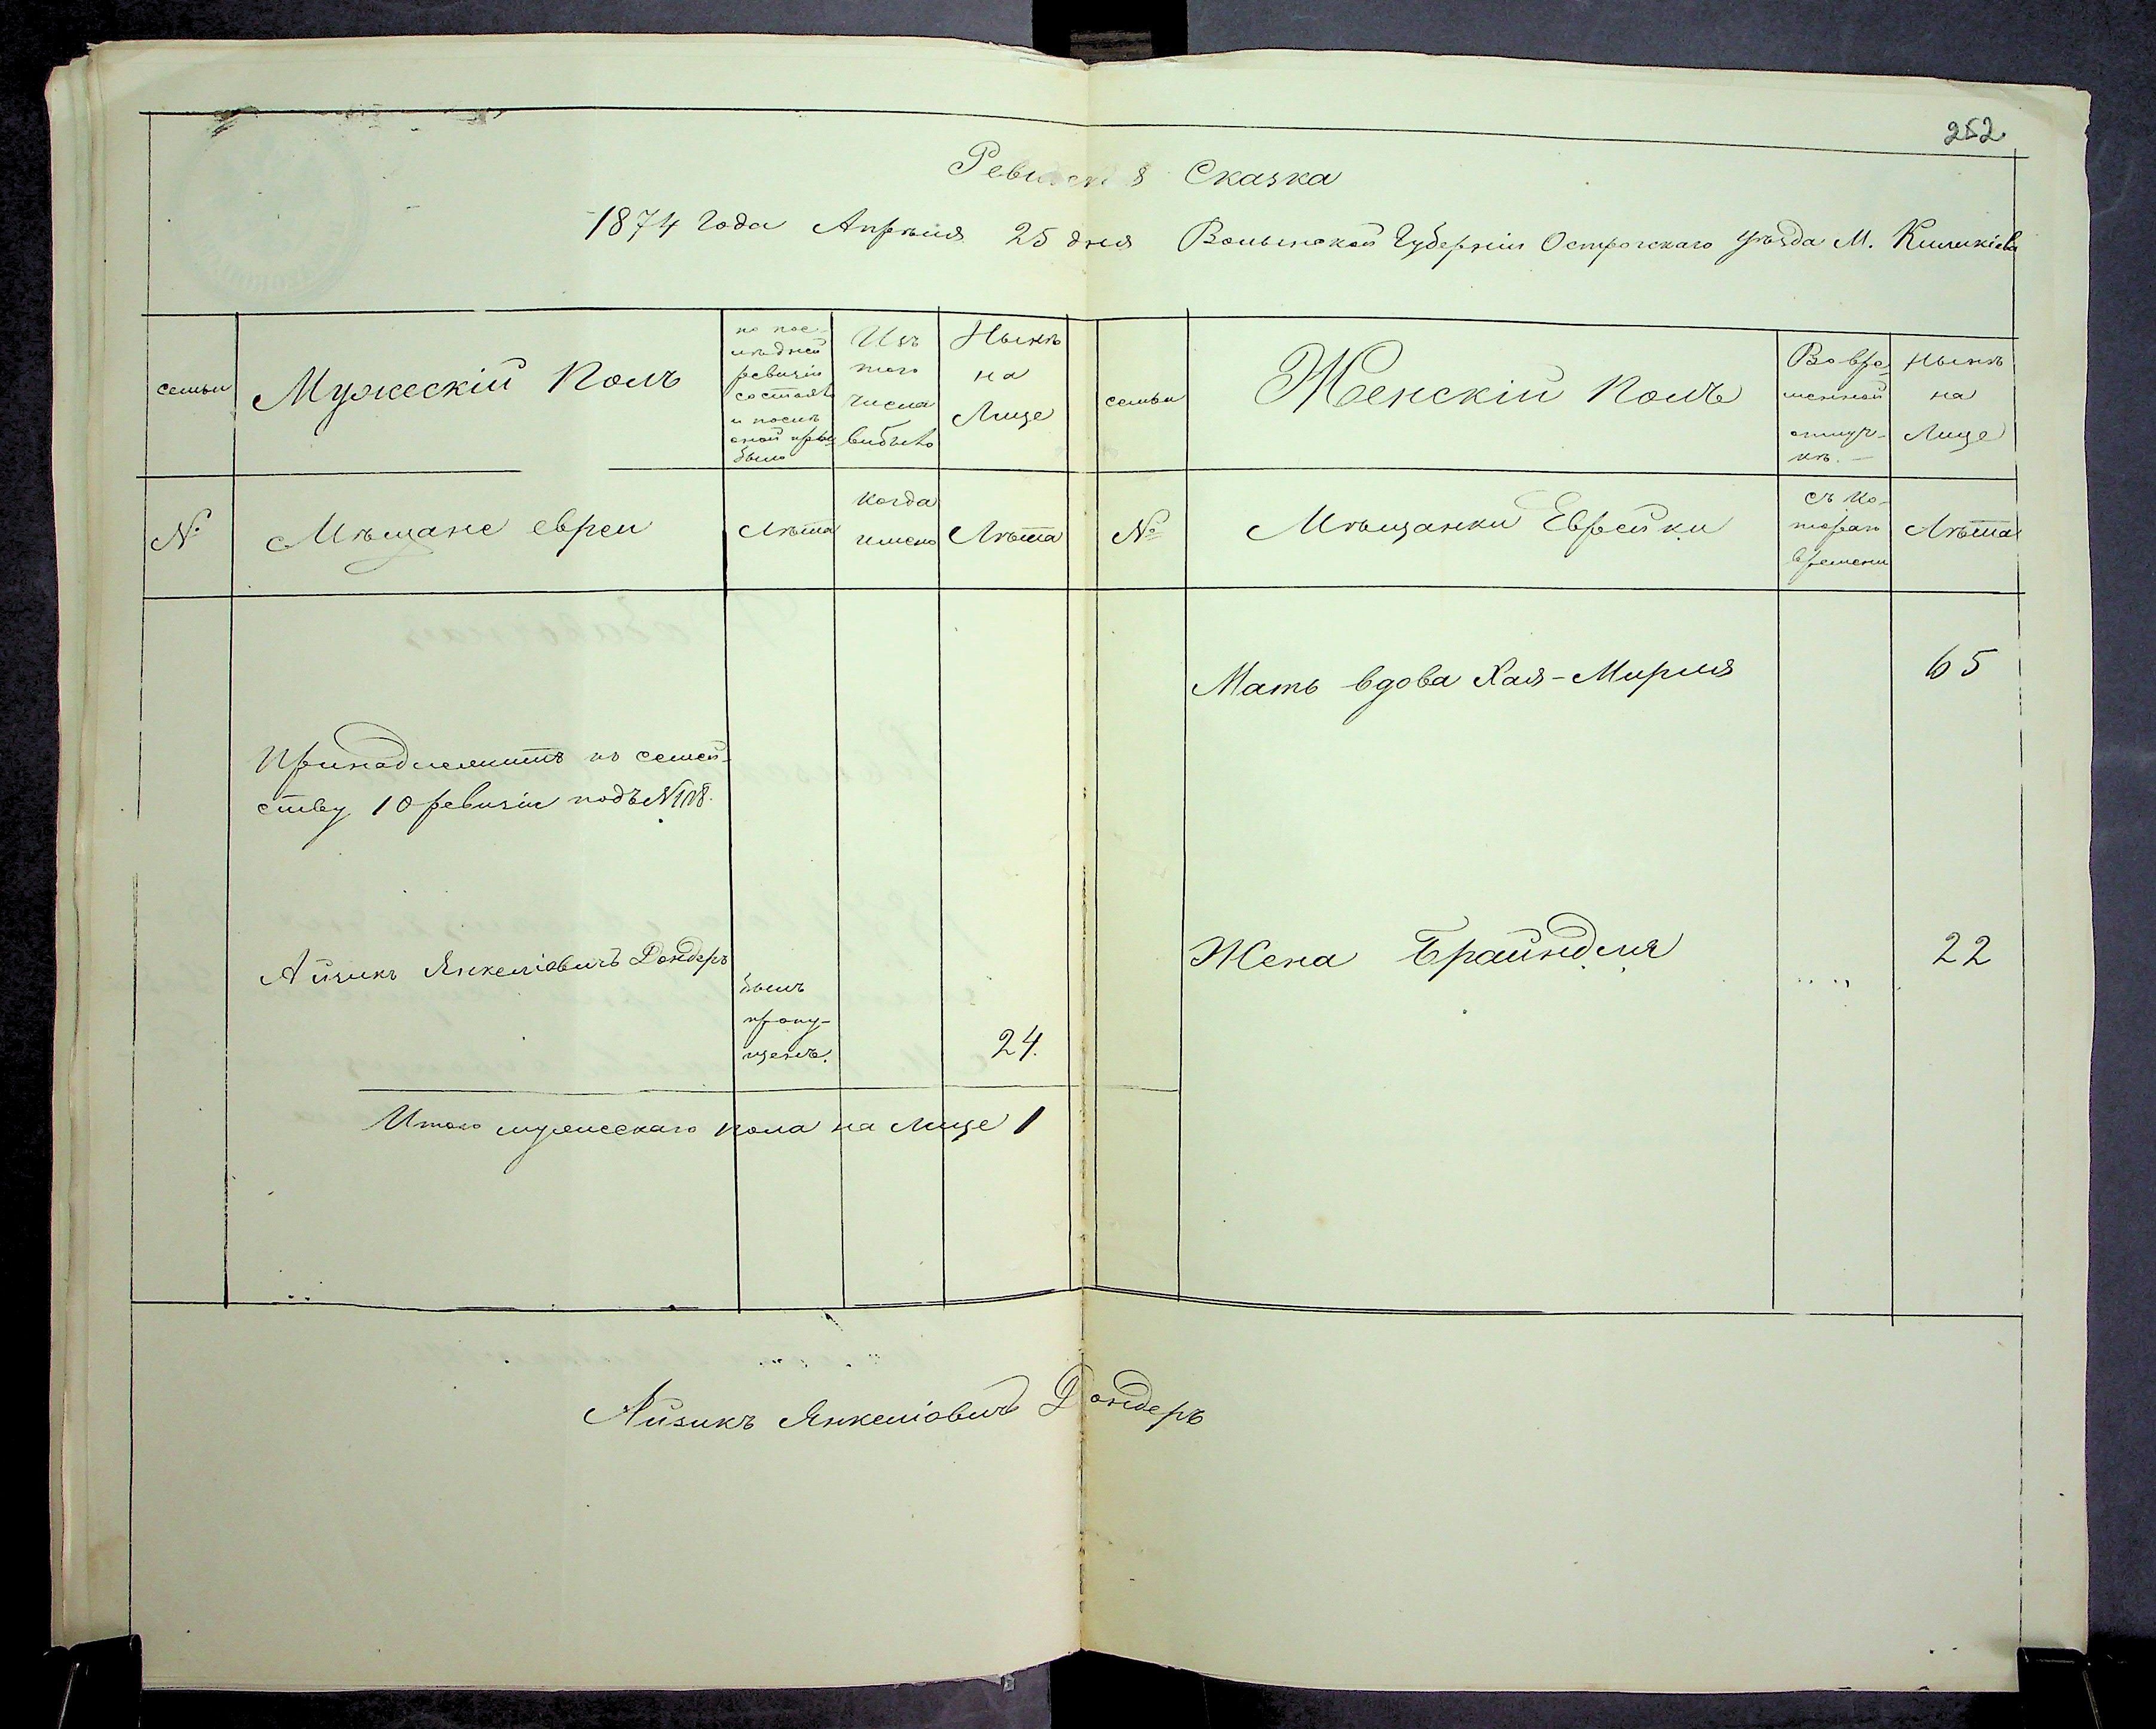 252.
Ревизская Сказка
1874 года Апрѣля 25 дня Волынской Губерніи Острогскаго уѣзда М. Киликіева
семьи
Мужескій Полъ
по пос-
лѣдней
ревизіи
состояло
и послѣ
оной при-
было
Изъ
того
числа
выбыло
Нынѣ
на
Лице
семьи
Женскій Полъ
Во вре-
менной
отлуч-
кѣ.
Нынѣ
на
Лице
№
Мѣщане евреи
Лѣта
когда
имено
Лѣта
№
Мѣщанки Еврейки
съ ко-
тораго
времени
Лѣта
Мать вдова Хая-Мирля 65
Принадлежитъ къ семей-
ству 10 ревизіи подъ №108.
Айзикъ Янкеліовичъ Дондеръ
былъ
пропу-
щенъ.
24.
Жена Брайндля 22
Итого мужескаго пола на лице 1
Айзикъ Янкеліовичъ Дондеръ